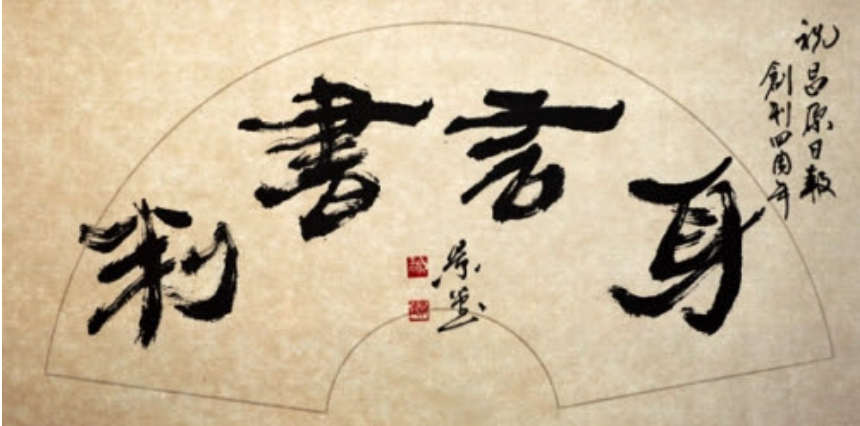 祝昌原日報
創刊四周年
身言書判